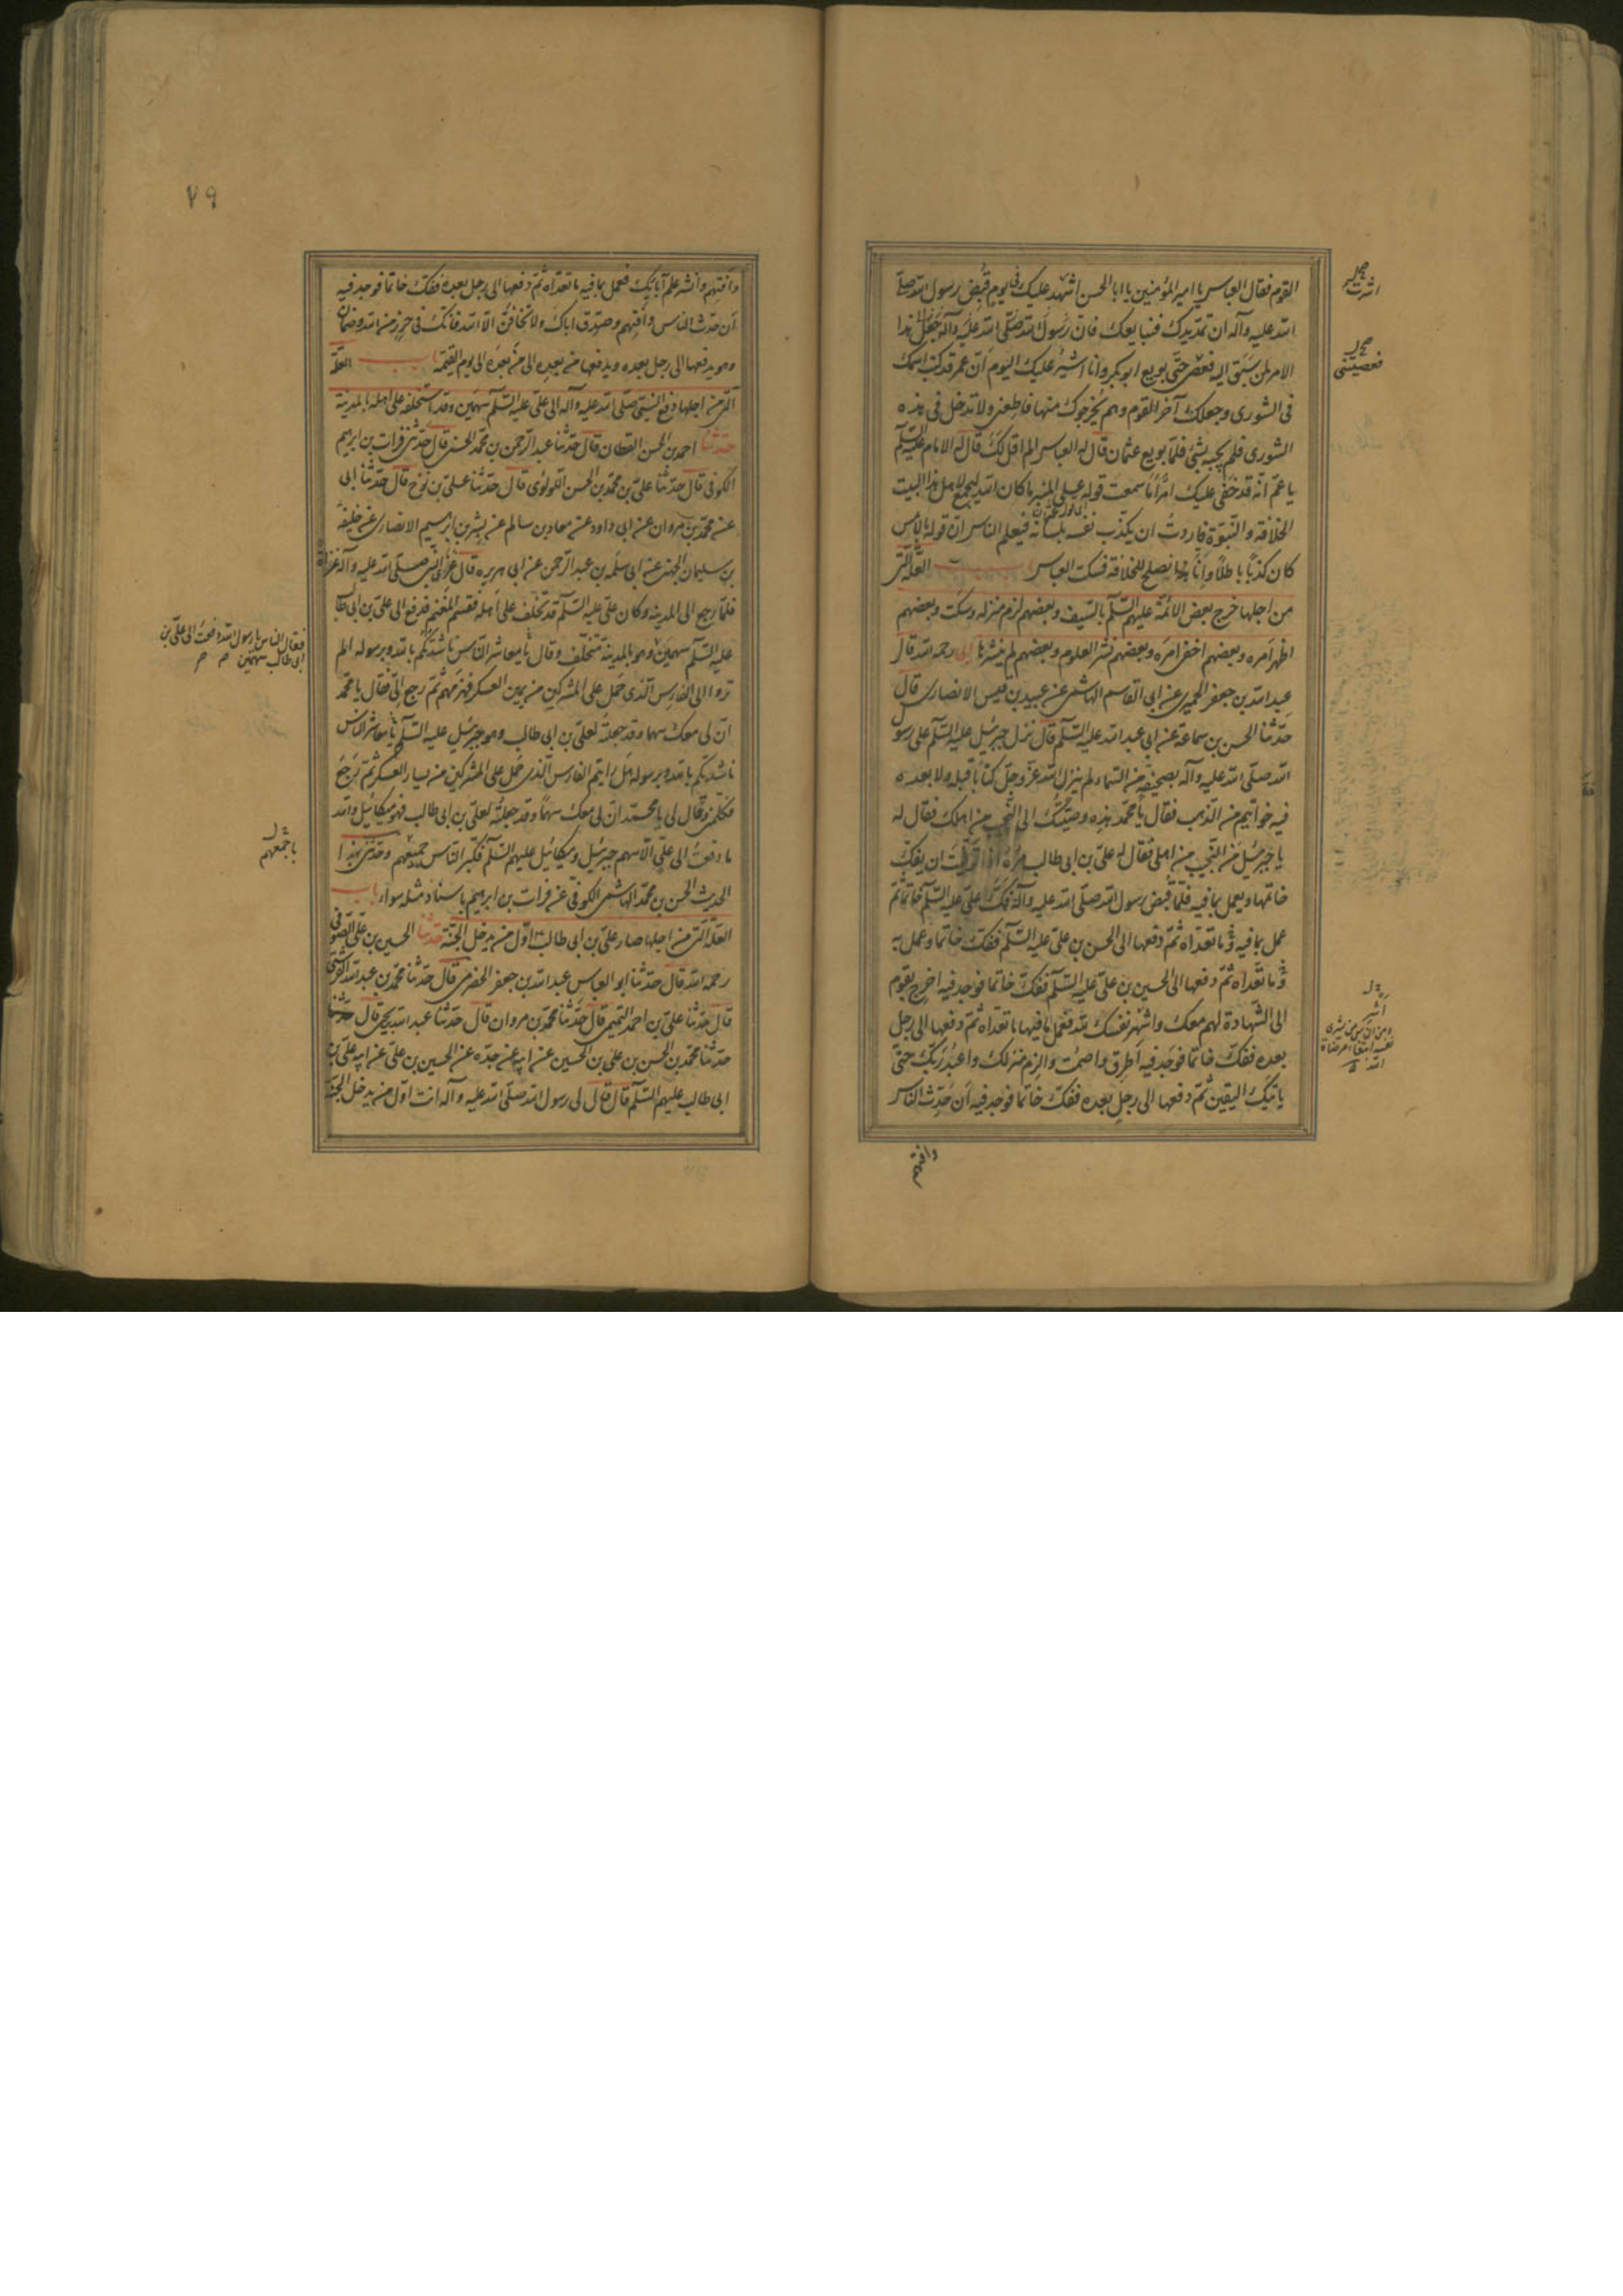 القوم فقال العباس يا امير المؤمنين يا ابا الحسن اشهد عليك في يوم قبض رسول الله صلى
الله عليه وآله ان تمد يدك فنبايعك فان رسول الله صلى الله عليه وآله جعل هذا
الامر لمن سبق اليه فعصي حتى بويع ابو بكر وانا اشير عليك اليوم ان عمر قد كتب اسمك
في الشورى وجعلك آخر القوم وهم يخرجوك منها فاطعني ولا تدخل في هذه
الشورى فلم يجبه بشئ فلما بويع عثمان قال له العباس الم اقل لك قال له الامام عليه السلم
يا عم انه قد خفي عليك امر اما سمعت قوله على المنبر ما كان الله ليجمع لاهل هذا البيت
الخلافة والنبوة فاردت ان يكذب نفسه بلسانه فيعلم الناس ان قوله بالامس
كان كذبا باطلا وانا نصلح للخلافة فسكت العباس باب العلة التي
من اجلها خرج بعض الائمة عليهم السلم بالسيف وبعضهم لزم منزله وسكت وبعضهم
اظهر امره وبعضهم اخفى امره وبعضهم نشر العلوم وبعضهم لم ينشرها ابى رحمه الله قال
عبد الله بن جعفر الحميري عن ابي القاسم الهاشمي عن عبيد بن قيس الانصاري قال
حدثنا الحسن بن سماعة عن ابي عبد الله عليه السلم قال نزل جبرئيل عليه السلم على رسول
الله صلى الله عليه وآله بصحيفة من السماء لم ينزل الله عز وجل كتابا قبله ولا بعده
فيه خواتيم من الذهب فقال يا محمد هذه وصيتك الى النجيب من اهلك فقال له
يا جبرئيل من النجيب من اهلي فقال له علي بن ابي طالب مره اذا توفيت ان يفك
خاتمها ويعمل بما فيه فلما قبض رسول الله صلى الله عليه وآله فك علي عليه السلم خاتما ثم
عمل بما فيه وما تعداه ثم دفعها الى الحسن بن علي عليه السلم ففك خاتما وعمل به
وما تعداه ثم دفعها الى الحسين بن علي عليه السلم ففك خاتما فوجد فيه اخرج بقوم
الى الشهادة لهم معك واشهر نفسك لله فعمل بما فيها ما تعداه ثم دفعها الى رجل
بعده ففك خاتما فوجد فيه اطرق واصمت والزم منزلك واعبد ربك حتى
ياتيك اليقين ثم دفعها الى رجل بعده ففك خاتما فوجد فيه ان حدث الناس
وافتهم
اشرت
فعصيتني
اشر
الله
٧٩
وافتهم وانشر علم آبائك فعمل بما فيه ما تعداه ثم دفعها الى رجل بعده ففك خاتما فوجد فيه
ان حدث الناس وافتهم وصدق اباك ولا تخافن الا الله فانك في حرز من الله وضمان
وهو يدفعها الى رجل بعده ويدفعها من بعده الى من بعده الى يوم القيمة باب العلة
التي من اجلها دفع النبي صلى الله عليه وآله الى علي عليه السلم سهمين وقد استخلفه على اهله بالمدينة
حدثنا احمد بن الحسن القطان قال حدثنا عبد الرحمن بن محمد الحسني قال حدثني فرات بن ابرهيم
الكوفي قال حدثنا علي بن محمد بن الحسن اللولوى قال حدثنا علي بن نوح قال حدثنا ابي
عن محمد بن مروان عن ابي داود عن معاد بن سالم عن بشر بن ابرهيم الانصاري عن خليفة
بن سليمان الجهني عن ابي سلمه بن عبد الرحمن عن ابي هريره قال غزا النبي صلى الله عليه وآله غزاة
فلما رجع الى المدينه وكان علي عليه السلم قد تخلف على اهله فقسم المغنم فدفع الى علي بن ابي طالب
عليه السلم سهمين وهو بالمدينة متخلف وقال يا معاشر الناس ناشدتكم بالله وبرسوله الم
تروا الى الفارس الذي حمل على المشركين من يمين العسكر فهزمهم ثم رجع الي فقال يا محمد
ان لي معك سهما وقد جعلته لعلي بن ابي طالب وهو جبرئيل عليه السلم يا معاشر الناس
ناشدتكم بالله وبرسوله هل رايتم الفارس الذي حمل على المشركين من يسار العسكر ثم رجع
فكلمني وقال لي يا محمد ان لي معك سهما وقد جعلته لعلي بن ابي طالب فهو ميكائيل والله
ما دفعت الى علي الا سهم جبرئيل وميكائيل عليهم السلم فكبر الناس جميعهم وحدثني بهذا
الحديث الحسن بن محمد الهاشمي الكوفي عن فرات بن ابرهيم باسناد مثله سواء باب
العلة التي من اجلها صار علي بن ابي طالب اول من يدخل الجنة حدثنا الحسين بن علي الصوفي
رحمه الله قال حدثنا ابو العباس عبد الله بن جعفر الحضرمي قال حدثنا محمد بن عبد الله القرشي
قال حدثنا علي بن احمد التميمي قال حدثنا محمد بن مروان قال حدثنا عبد الله يحيى قال حدثنا
حدثنا محمد بن الحسن بن علي بن الحسين عن ابيه عن جده عن الحسين بن علي عن ابيه علي بن
ابي طالب عليهم السلم قال قال لي رسول الله صلى الله عليه وآله انت اول من يدخل الجنة
فقال الناس يا رسول الله دفعت الى علي بن
ابي طالب سهمين
باجمعهم